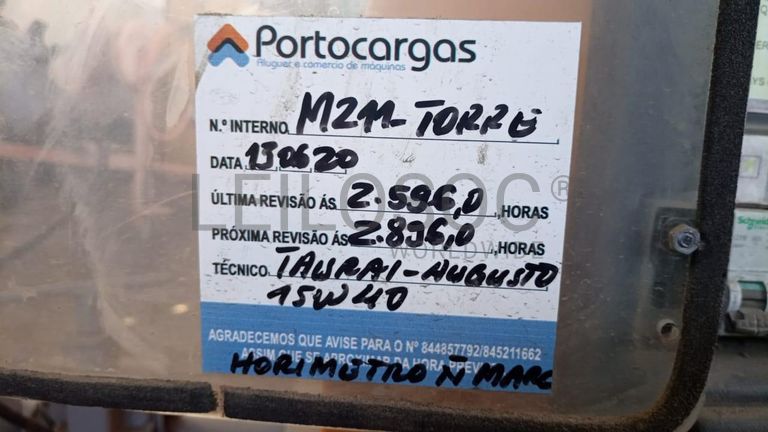 Portocargas
Aluguer e comércio de máquinas
N.º INTERNO M211-TORRE
DATA 13.06.20
ÚLTIMA REVISÃO ÁS 2.596,0 ,HORAS
PRÓXIMA REVISÃO ÁS 2.896,0 ,HORAS
TÉCNICO TAURAI-AUGUSTO
15W40
AGRADECEMOS QUE AVISE PARA O Nº 844857792/845211662
ASSIM QUE SE APROXIMAR DA HORA PREV
HORIMETRO Ñ MARC
LEILOSOC®
WORLDWIDE
Schneider